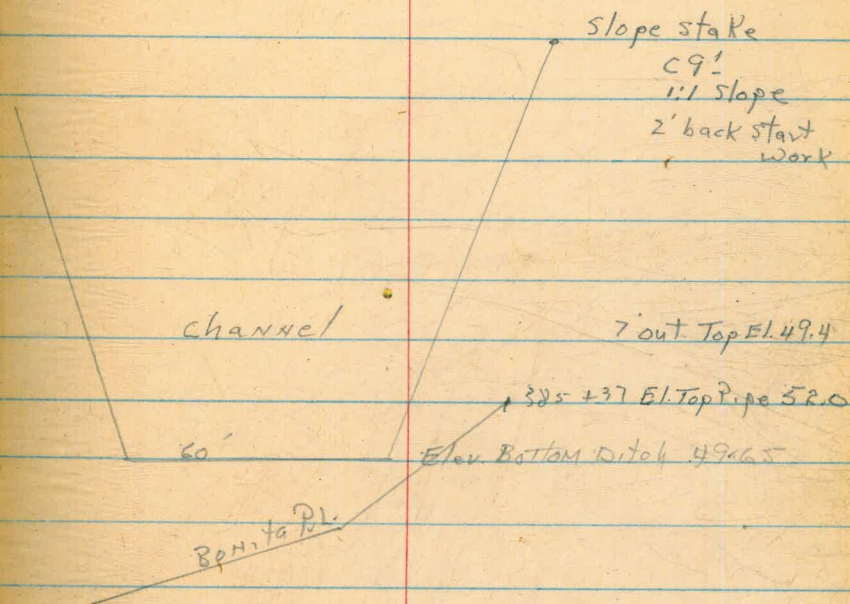 Slope Stake
C 9'
1:1 Slope
2' back start
work
Channel
7' out Top El. 49.4
385 +37 El. Top Pipe 52.0
60'
Elev. Bottom Ditch 49.65
Bonita P.L.